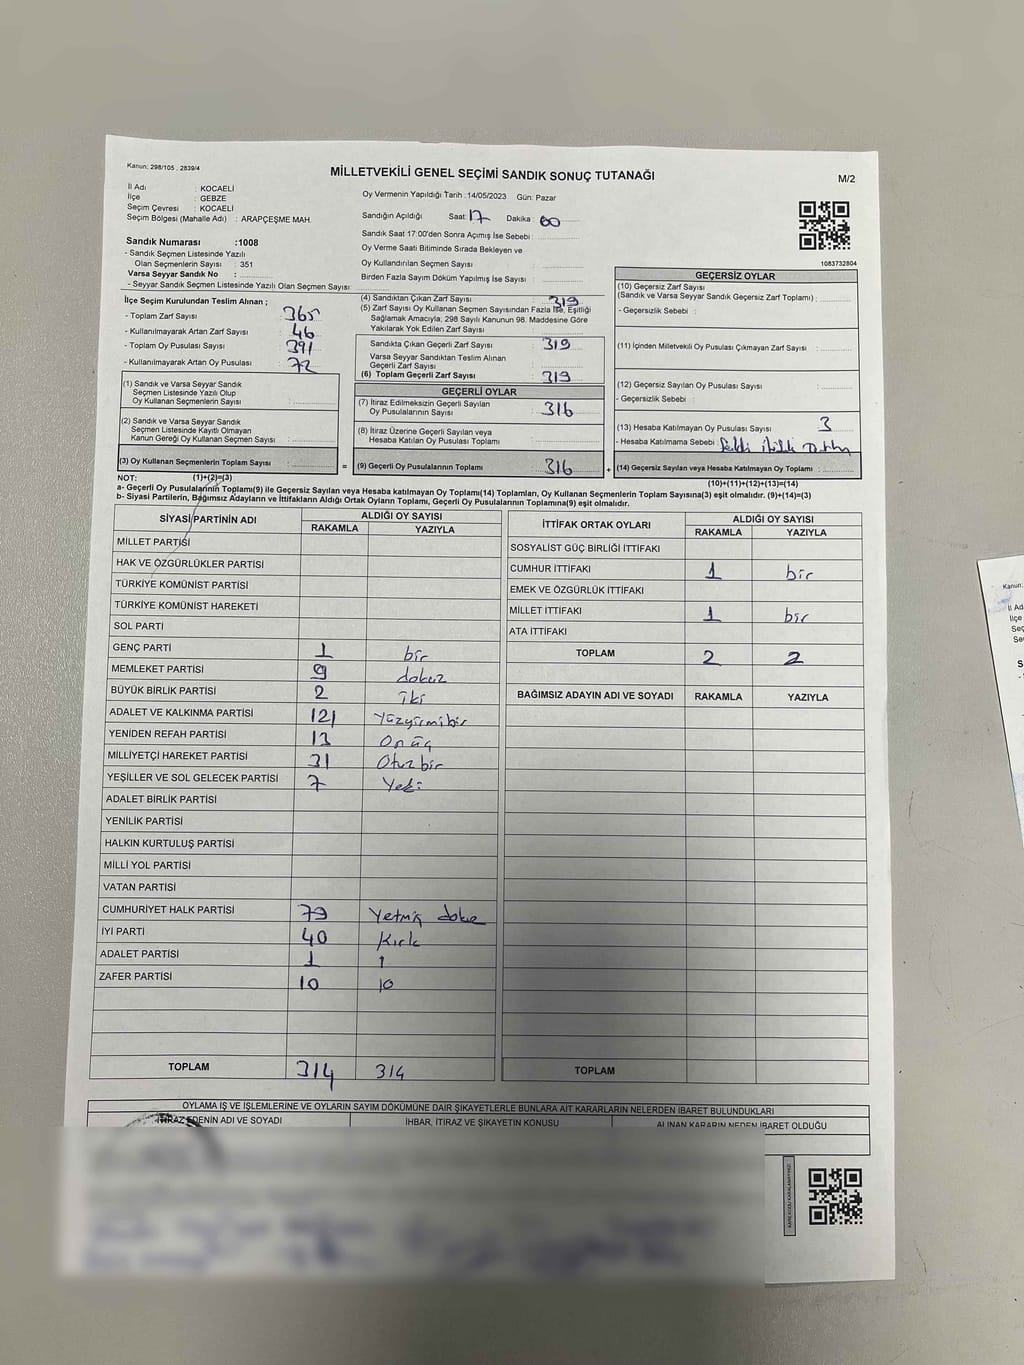 Kanun: 298/105 , 2839/4
MİLLETVEKİLİ GENEL SEÇİMİ SANDIK SONUÇ TUTANAĞI
M/2
İl Adı : KOCAELİ
İlçe : GEBZE
Seçim Çevresi : KOCAELİ
Seçim Bölgesi (Mahalle Adı) : ARAPÇEŞME MAH.
Sandık Numarası :1008
- Sandık Seçmen Listesinde Yazılı
Olan Seçmenlerin Sayısı : 351
Varsa Seyyar Sandık No :
- Seyyar Sandık Seçmen Listesinde Yazılı Olan Seçmen Sayısı :
Oy Vermenin Yapıldığı Tarih :14/05/2023 Gün: Pazar
Sandığın Açıldığı Saat : 17 Dakika : 00
Sandık Saat 17:00'den Sonra Açılmış İse Sebebi :
Oy Verme Saati Bitiminde Sırada Bekleyen ve
Oy Kullandırılan Seçmen Sayısı :
Birden Fazla Sayım Döküm Yapılmış İse Sayısı :
1083732804
İlçe Seçim Kurulundan Teslim Alınan ;
- Toplam Zarf Sayısı : 365
- Kullanılmayarak Artan Zarf Sayısı : 46
- Toplam Oy Pusulası Sayısı : 391
- Kullanılmayarak Artan Oy Pusulası : 72
(1) Sandık ve Varsa Seyyar Sandık
Seçmen Listesinde Yazılı Olup
Oy Kullanan Seçmenlerin Sayısı :
(2) Sandık ve Varsa Seyyar Sandık
Seçmen Listesinde Kayıtlı Olmayan
Kanun Gereği Oy Kullanan Seçmen Sayısı :
(3) Oy Kullanan Seçmenlerin Toplam Sayısı :
(1)+(2)=(3)
(4) Sandıktan Çıkan Zarf Sayısı : 319
(5) Zarf Sayısı Oy Kullanan Seçmen Sayısından Fazla İse, Eşitliği
Sağlamak Amacıyla; 298 Sayılı Kanunun 98. Maddesine Göre
Yakılarak Yok Edilen Zarf Sayısı :
Sandıkta Çıkan Geçerli Zarf Sayısı : 319
Varsa Seyyar Sandıktan Teslim Alınan
Geçerli Zarf Sayısı :
(6) Toplam Geçerli Zarf Sayısı : 319
GEÇERLİ OYLAR
(7) İtiraz Edilmeksizin Geçerli Sayılan
Oy Pusulalarının Sayısı : 316
(8) İtiraz Üzerine Geçerli Sayılan veya
Hesaba Katılan Oy Pusulası Toplamı :
= (9) Geçerli Oy Pusulalarının Toplamı : 316 +
GEÇERSİZ OYLAR
(10) Geçersiz Zarf Sayısı
(Sandık ve Varsa Seyyar Sandık Geçersiz Zarf Toplamı) :
- Geçersizlik Sebebi :
(11) İçinden Milletvekili Oy Pusulası Çıkmayan Zarf Sayısı :
(12) Geçersiz Sayılan Oy Pusulası Sayısı :
- Geçersizlik Sebebi :
(13) Hesaba Katılmayan Oy Pusulası Sayısı : 3
- Hesaba Katılmama Sebebi :
(14) Geçersiz Sayılan veya Hesaba Katılmayan Oy Toplamı :
(10)+(11)+(12)+(13)=(14)
NOT:
a- Geçerli Oy Pusulalarının Toplamı(9) ile Geçersiz Sayılan veya Hesaba katılmayan Oy Toplamı(14) Toplamları, Oy Kullanan Seçmenlerin Toplam Sayısına(3) eşit olmalıdır. (9)+(14)=(3)
b- Siyasi Partilerin, Bağımsız Adayların ve İttifakların Aldığı Ortak Oyların Toplamı, Geçerli Oy Pusulalarının Toplamına(9) eşit olmalıdır.
SİYASİ PARTİNİN ADI ALDIĞI OY SAYISI
RAKAMLA YAZIYLA
MİLLET PARTİSİ
HAK VE ÖZGÜRLÜKLER PARTİSİ
TÜRKİYE KOMÜNİST PARTİSİ
TÜRKİYE KOMÜNİST HAREKETİ
SOL PARTİ
GENÇ PARTİ 1 bir
MEMLEKET PARTİSİ 9 dokuz
BÜYÜK BİRLİK PARTİSİ 2 iki
ADALET VE KALKINMA PARTİSİ 121 Yüzyirmibir
YENİDEN REFAH PARTİSİ 13 Onüç
MİLLİYETÇİ HAREKET PARTİSİ 31 Otuzbir
YEŞİLLER VE SOL GELECEK PARTİSİ 7 Yedi
ADALET BİRLİK PARTİSİ
YENİLİK PARTİSİ
HALKIN KURTULUŞ PARTİSİ
MİLLİ YOL PARTİSİ
VATAN PARTİSİ
CUMHURİYET HALK PARTİSİ 79 Yetmiş dokuz
İYİ PARTİ 40 Kırk
ADALET PARTİSİ 1 1
ZAFER PARTİSİ 10 10
TOPLAM 314 314
İTTİFAK ORTAK OYLARI ALDIĞI OY SAYISI
RAKAMLA YAZIYLA
SOSYALİST GÜÇ BİRLİĞİ İTTİFAKI
CUMHUR İTTİFAKI 1 bir
EMEK VE ÖZGÜRLÜK İTTİFAKI
MİLLET İTTİFAKI 1 bir
ATA İTTİFAKI
TOPLAM 2 2
BAĞIMSIZ ADAYIN ADI VE SOYADI RAKAMLA YAZIYLA
TOPLAM
OYLAMA İŞ VE İŞLEMLERİNE VE OYLARIN SAYIM DÖKÜMÜNE DAİR ŞİKAYETLERLE BUNLARA AİT KARARLARIN NELERDEN İBARET BULUNDUKLARI
İTİRAZ EDENİN ADI VE SOYADI İHBAR, İTİRAZ VE ŞİKAYETİN KONUSU ALINAN KARARIN NEDEN İBARET OLDUĞU
KAREKODU KARALAMAYINIZ!
Kanun:
İl Ad
İlçe
Seç
Se
S